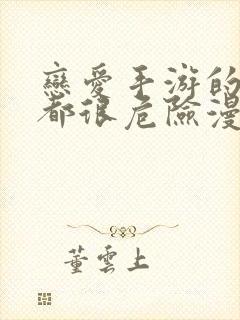 戀愛手游的
都很危險漫
董雲上